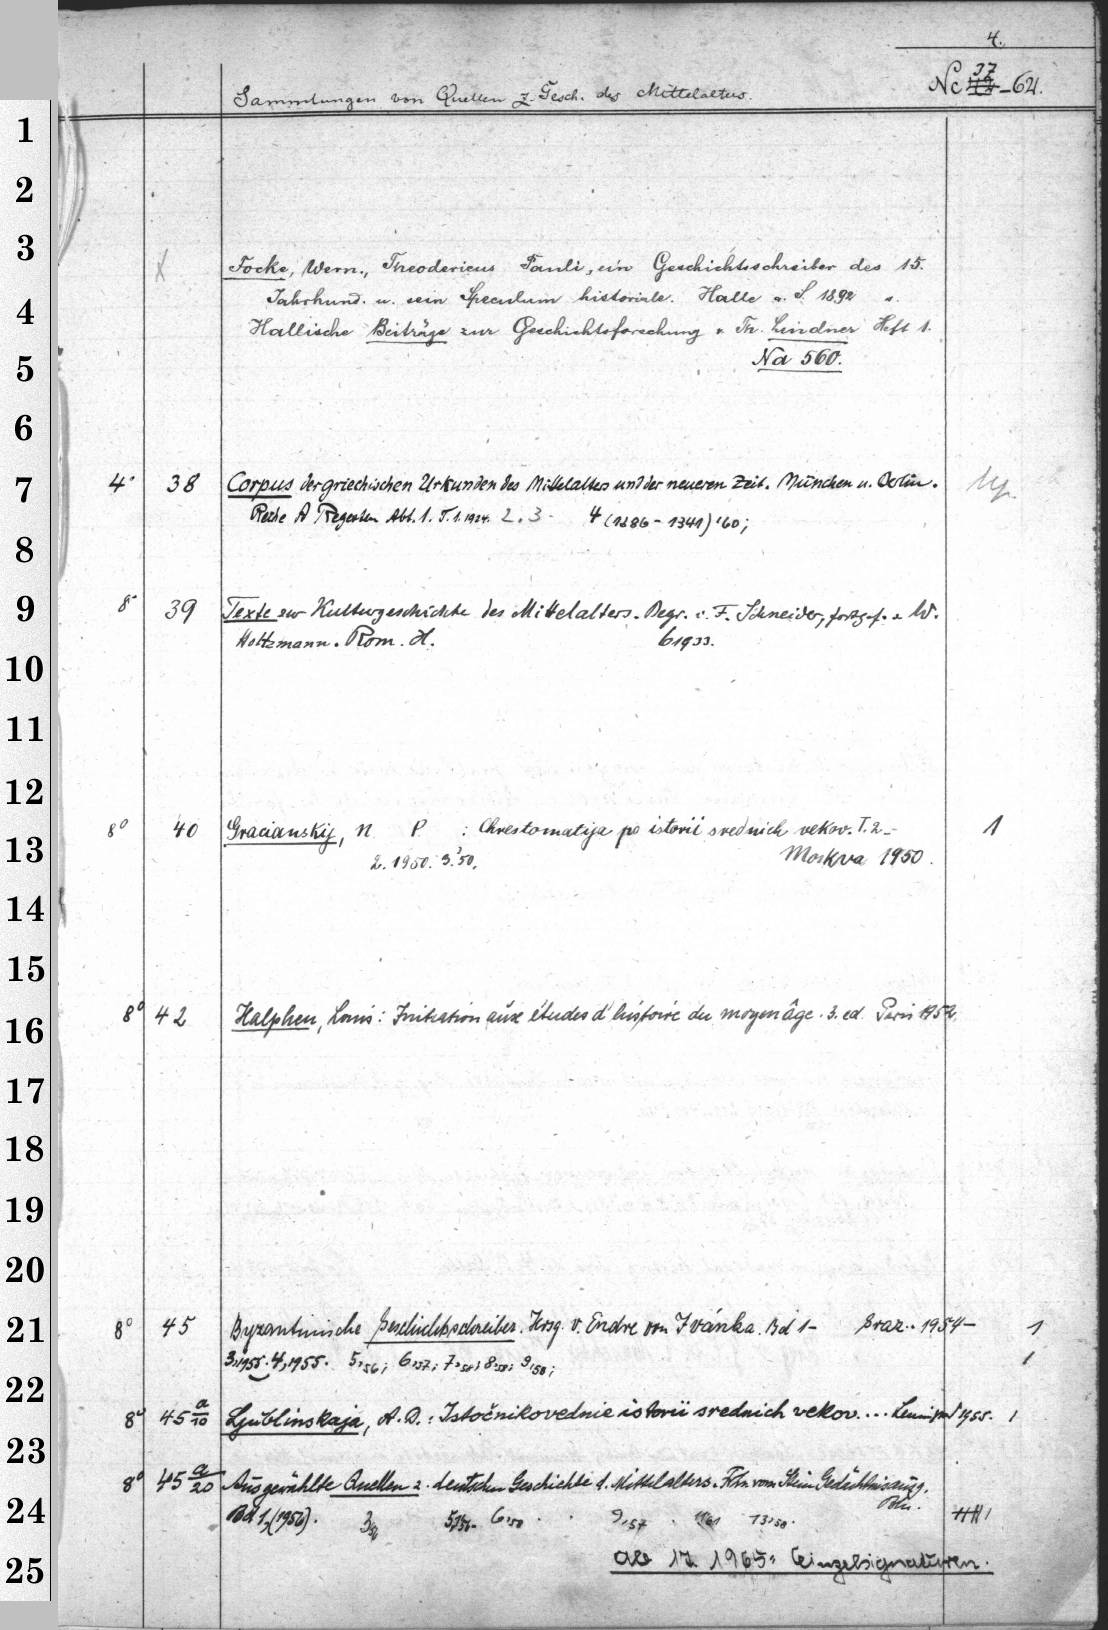 4.
Nc 37 -64.
Sammlungen von Quellen z. Gesch. des Mittelalters.
1
2
3
Focke, Wern., Theodericus Pauli, ein Geschichtsschreiber des 15.
4
Jahrhund. u. sein Speculum historiale. Halle a. S. 1892
Hallische Beiträge zur Geschichtsforschung v. Th. Lindner Heft 1.
5
Na 560.
6
7
4° 38 Corpus der griechischen Urkunden des Mittelalters und der neueren Zeit. München u. Berlin.
Reihe A Regesten Abt. 1. T. 1. 1924. 2. 3- 4 (1286-1341) '60;
8
9
8° 39 Texte zur Kulturgeschichte des Mittelalters. Begr. v. F. Schneider, fortgef. v. W.
Holtzmann. Rom. H. 6 1933.
10
11
12
8° 40 Gracianskij, N P : Chrestomatija po istorii srednich vekov. T. 2- 1
13
2. 1950. 3.'50. Moskva 1950.
14
15
16
8° 42 Halphen, Louis: Initiation aux études d'histoire du moyen âge. 3. ed. Paris 1952.
17
18
19
20
21
8° 45 Byzantinische Geschichtsschreiber. Hrsg. v. Endre von Ivánka. Bd 1- Graz.. 1954- 1
3, 1955. 4, 1955. 5,'56; 6,'57; 7,'58; 8,'58; 9,'58; 1
22
8° 45 a/10 Ljublinskaja, A. D.: Istočnikovednie istorii srednich vekov. ... Leningrad 1955. 1
23
8° 45 a/20 Ausgewählte Quellen z. deutschen Geschichte d. Mittelalters. Frhr. vom Stein Gedächtnisausg.
24
Bln.
Bd 1, (1956). 9,'57
ab 17. 1965: Einzelsignaturen.
25